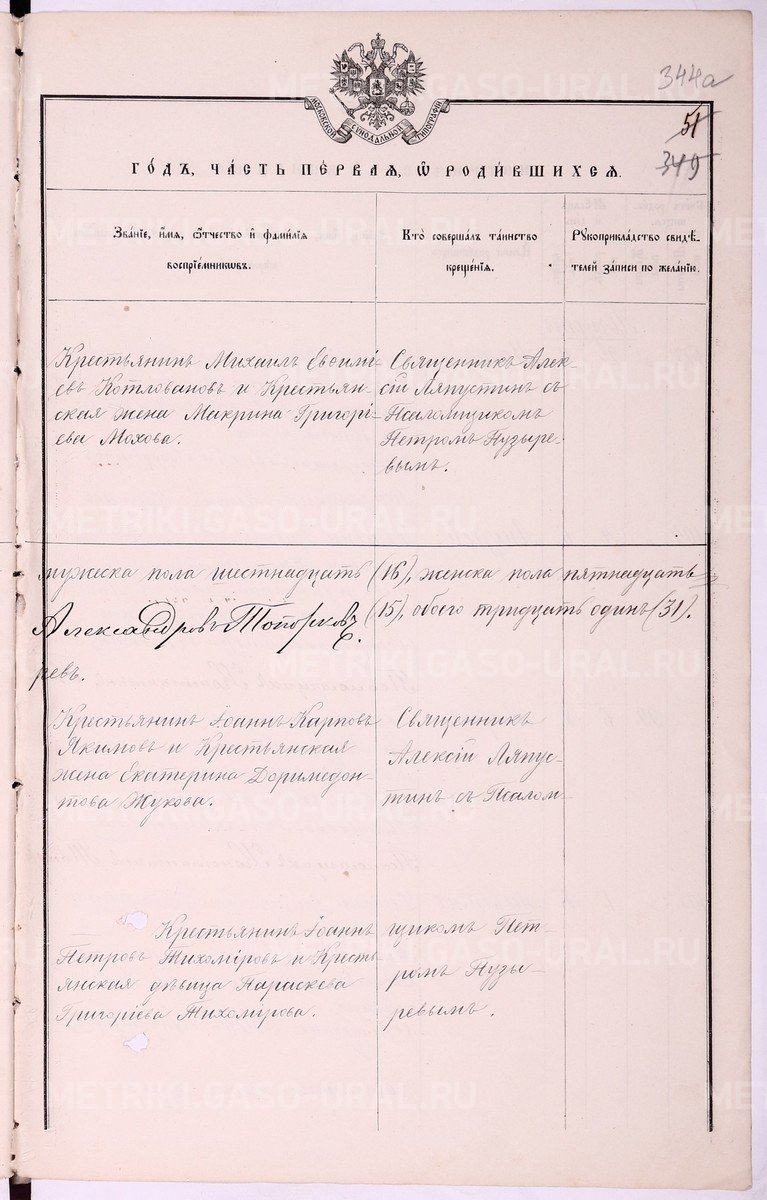 344а
51
345
МОСКОВСКОЙ СѴНОДАЛЬНОЙ ТИПОГРАФІИ
ГО́ДЪ, ЧА́СТЬ ПЕ́РВАЯ, Ѡ҆ РОДИ́ВШИХСЯ.
Зва́нїе, и҆́мѧ, ѻ҆́тчество и҆ фами́лїѧ
воспрїе́мникѡвъ.
Кто̀ соверша́лъ та́инство
креще́нїѧ.
Рꙋкоприкла́дство свидѣ́-
телей за́писи по жела́нїю.
Крестьянинъ Михаилъ Евоимі-
евъ Котловановъ и Крестьян-
ская жена Макрина Григорі-
ева Мохова.
Священникъ Алек-
сій Ляпустинъ съ
Псаломщикомъ
Петромъ Пузыре-
вымъ.
мужеска пола шестнадцать (16), женска пола пятнадцать
(15), обоего тридцать одинъ (31).
Александровъ Топорковъ
ревъ.
Крестьянинъ Іоаннъ Карповъ
Якимовъ и Крестьянская
жена Екатерина Доримедон-
това Жукова.
Священникъ
Алексій Ляпус-
тинъ съ Псалом-
Крестьянинъ Іоаннъ
Петровъ Тихоміровъ и Кресть
янская дѣвица Параскева
Григоріева Тихомірова.
щикомъ Пет-
ромъ Пузы-
ревымъ.
METRIKI.GASO-URAL.RU